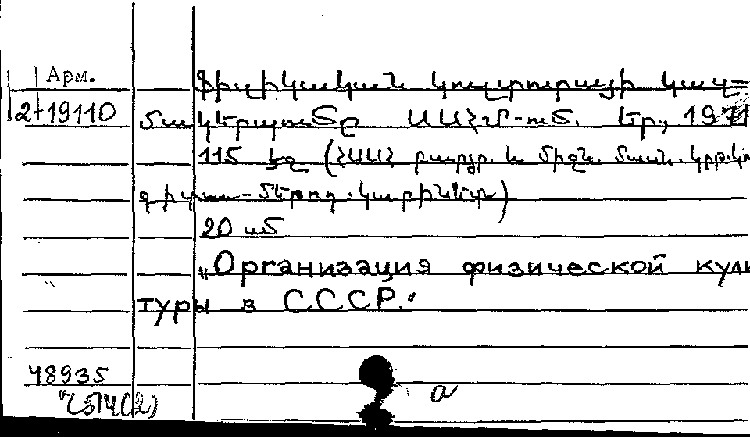 Арм.
Ֆիզիկական կուլտուրայի կազ-
2-19110
մակերպումը ՍՍՀՄ-ում. Եր., 197
115 էջ (ՀՍՍՀ բարձր. և միջն. մասն. կրթ.
գիտա-մեթոդ. կաբինետ)
20 սմ
„Организация физической куль
туры в СССР."
48935